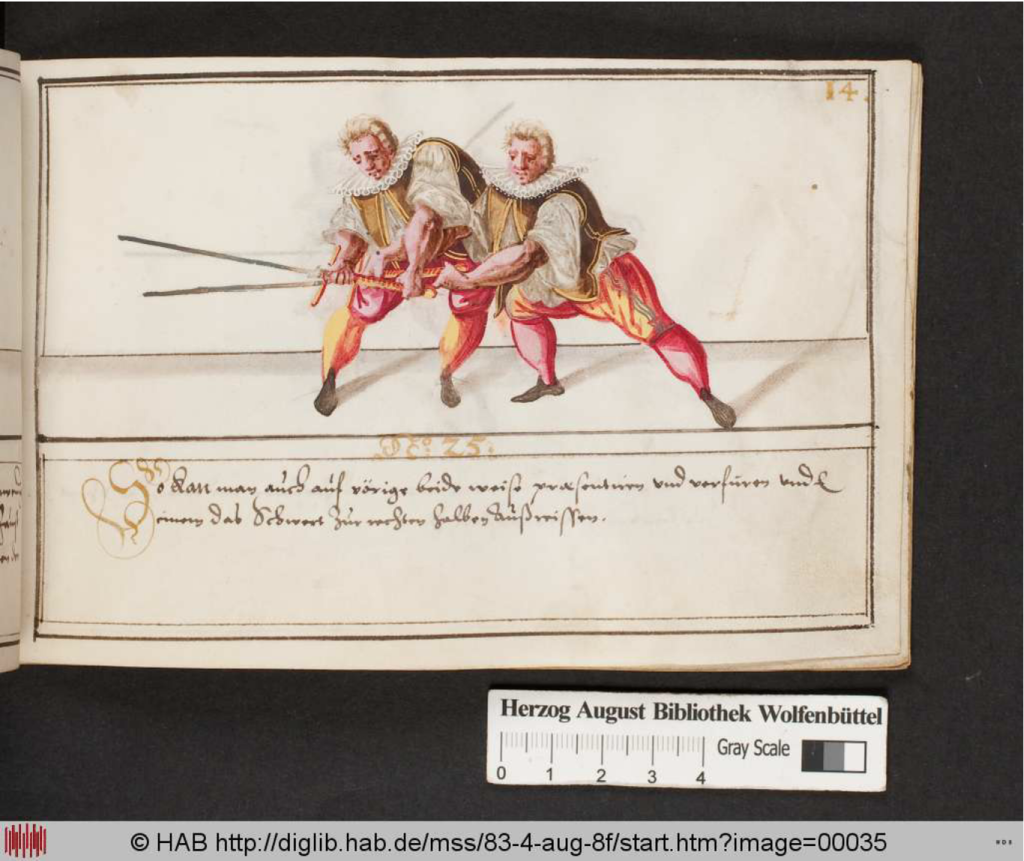 14.
No: 25.
So kan man auch auf vörige beide weise præsentiren vnd verfüren vnd
einem das Schwert zur rechten halben außreissen.
Herzog August Bibliothek Wolfenbüttel
Gray Scale
0 1 2 3 4
© HAB http://diglib.hab.de/mss/83-4-aug-8f/start.htm?image=00035